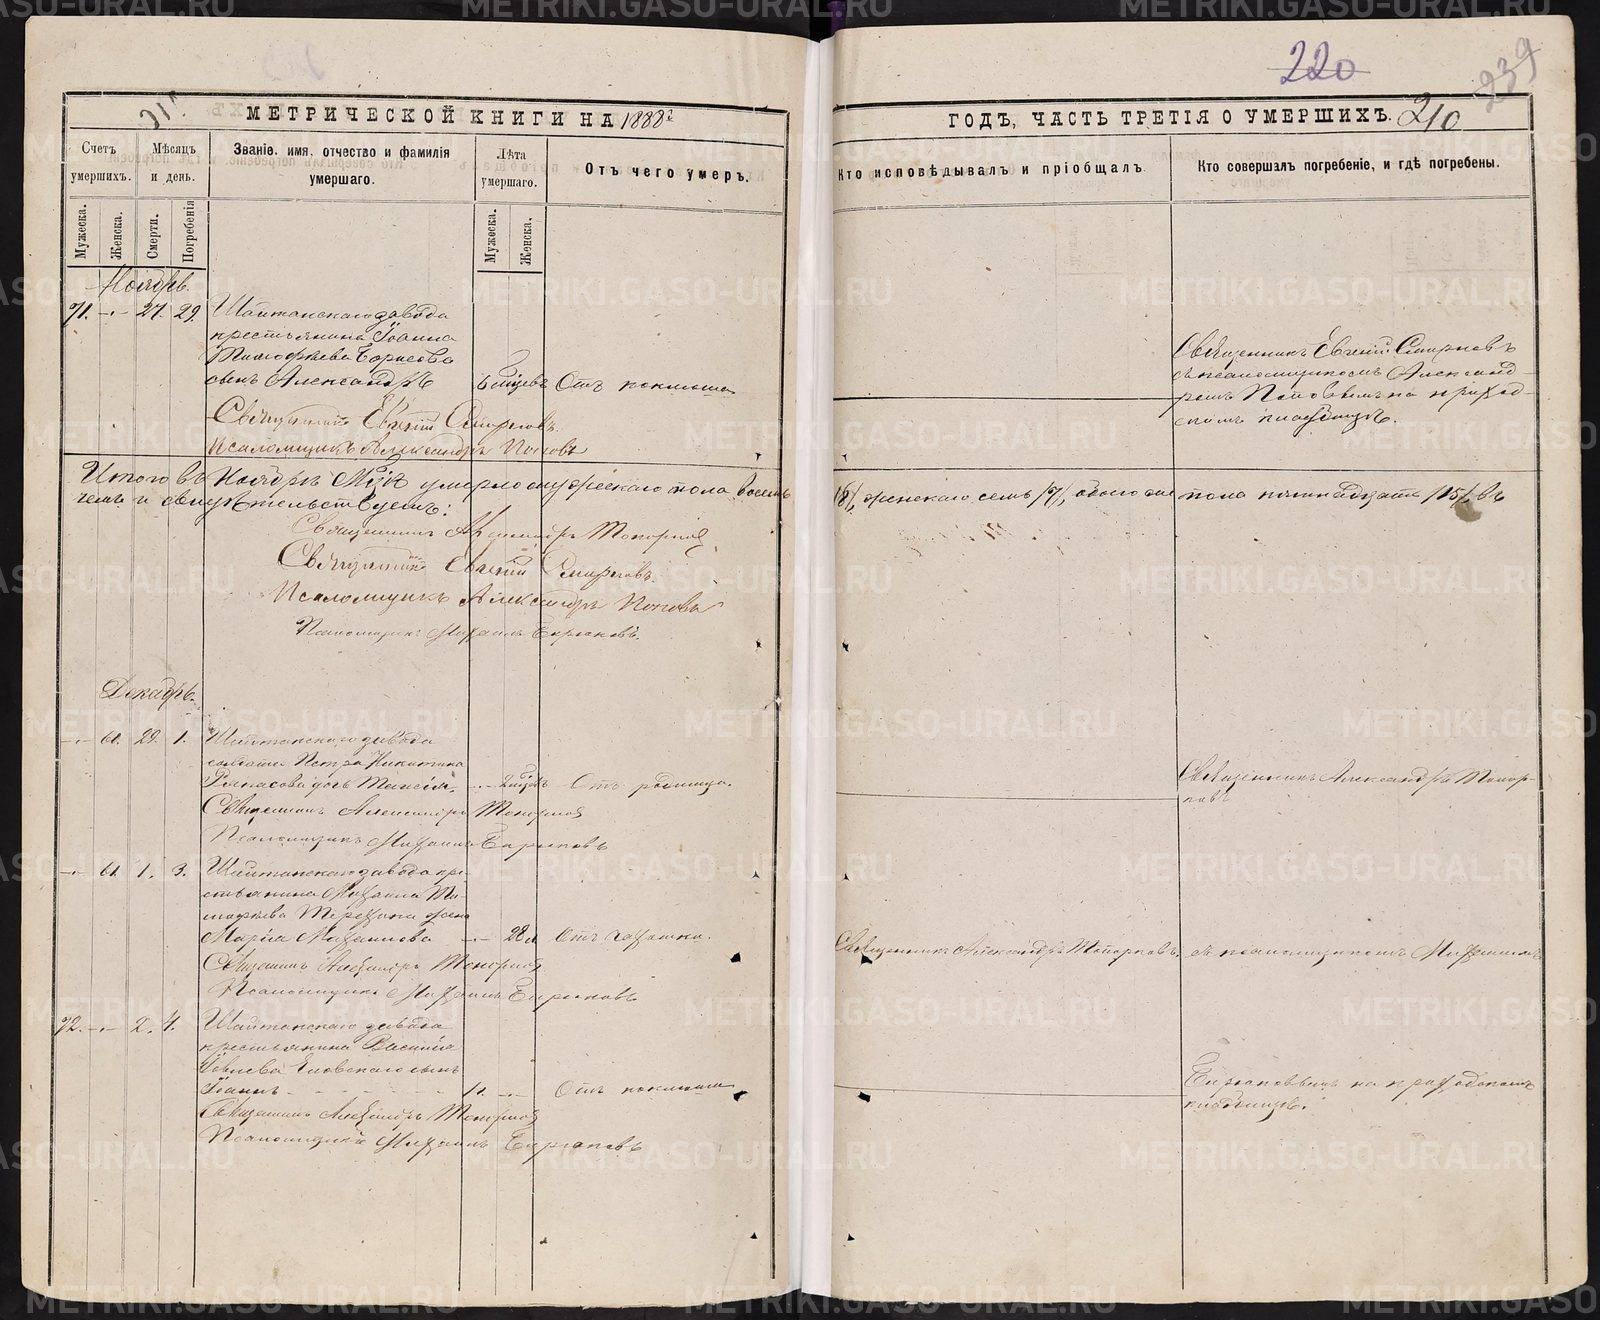 220
239
МЕТРИЧЕСКОЙ КНИГИ НА 1888
ГОДЪ, ЧАСТЬ ТРЕТІЯ О УМЕРШИХЪ. 210
Счетъ умершихъ.
Мѣсяцъ и день.
Званіе, имя, отчество и фамилія умершаго.
Лѣта умершаго.
Отъ чего умеръ.
Кто исповѣдывалъ и пріобщалъ.
Кто совершалъ погребеніе, и гдѣ погребены.
Мужеска.
Женска.
Смерти.
Погребенія
Мужеска.
Женска.
Ноябрь.
71. 27. 29. Шайтанскаго завода
крестьянина Іоанна
Тимофѣева Борисова
сынъ Александръ
Отъ коклюша
Священникъ Евгеній Смирновъ
съ псаломщикомъ Александ-
ромъ Поповымъ на приход-
скомъ кладбищѣ.
Священникъ Евгеній Смирновъ.
Псаломщикъ Александръ Поповъ
Итого въ Ноябрѣ Мцѣ умерло мужескаго пола восемь /8/, женскаго семь /7/, обоего пола пятнадцать /15/, въ
чемъ и свидѣтельствуемъ:
Священникъ Александръ Топорковъ
Священникъ Евгеній Смирновъ.
Псаломщикъ Александръ Поповъ
Псаломщикъ Михаилъ Бирюковъ.
Декабрь.
29. 1. Шайтанскаго завода
солдата Петра Никитина
дочь
Отъ родимца.
Священникъ Александръ Топор-
ковъ
Священникъ Александръ Топорковъ
Псаломщикъ Михаилъ Бирюковъ
1. 3. Шайтанскаго завода кре-
стьянина Михаила Ти-
мофѣева Терехина жена
Марія Михаилова
28 л.
Отъ чахотки.
Священникъ Александръ Топорковъ.
съ псаломщикомъ Михаиломъ
Священникъ Александръ Топорковъ
Псаломщикъ Михаилъ Бирюковъ
72. 2. 4. Шайтанскаго завода
крестьянина Василія
сынъ
Іоаннъ
Отъ коклюша
Бирюковымъ на приходскомъ
кладбищѣ.
Священникъ Александръ Топорковъ
Псаломщикъ Михаилъ Бирюковъ
METRIKI.GASO-URAL.RU